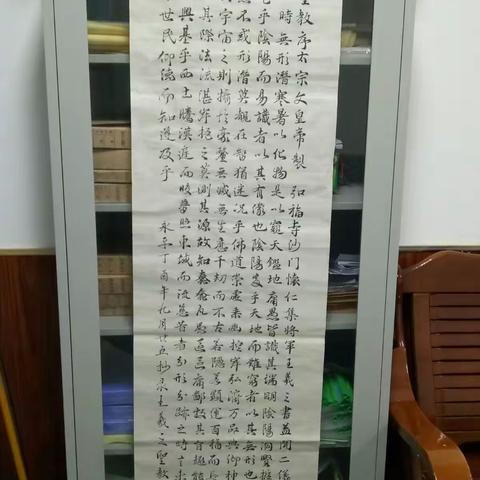 教序太宗文皇帝製 弘福寺沙门懷仁集將軍王羲之書蓋聞二儀
時無形潛寒暑以化物是以窺天鑑地庸愚皆識其端明陰陽洞賢
乎陰陽而易識者以其有像也陰陽處乎天地而難窮者以其無形也
不惑形潛莫覩在智猶迷況乎佛道崇虛乘幽控寂弘濟万品典御神
宇宙之則攝於豪釐無滅無生歷千劫而不古若隱若顯運百福而長
其際法流湛寂挹之莫測其源故知蠢蠢凡愚區區庸鄙投其旨趣能
興基乎西土騰漢庭而皎夢照東域而流慈昔者分形分跡之時言未
世民仰德而知遵及乎 丁酉年九月廿五抄录王羲之聖教